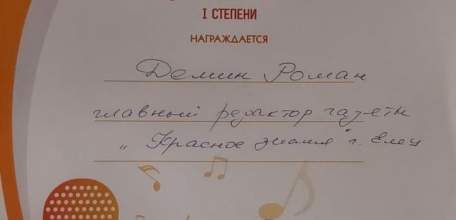 I СТЕПЕНИ
НАГРАЖДАЕТСЯ
Демин Роман
главный редактор газеты
„Красное знамя" г. Елец